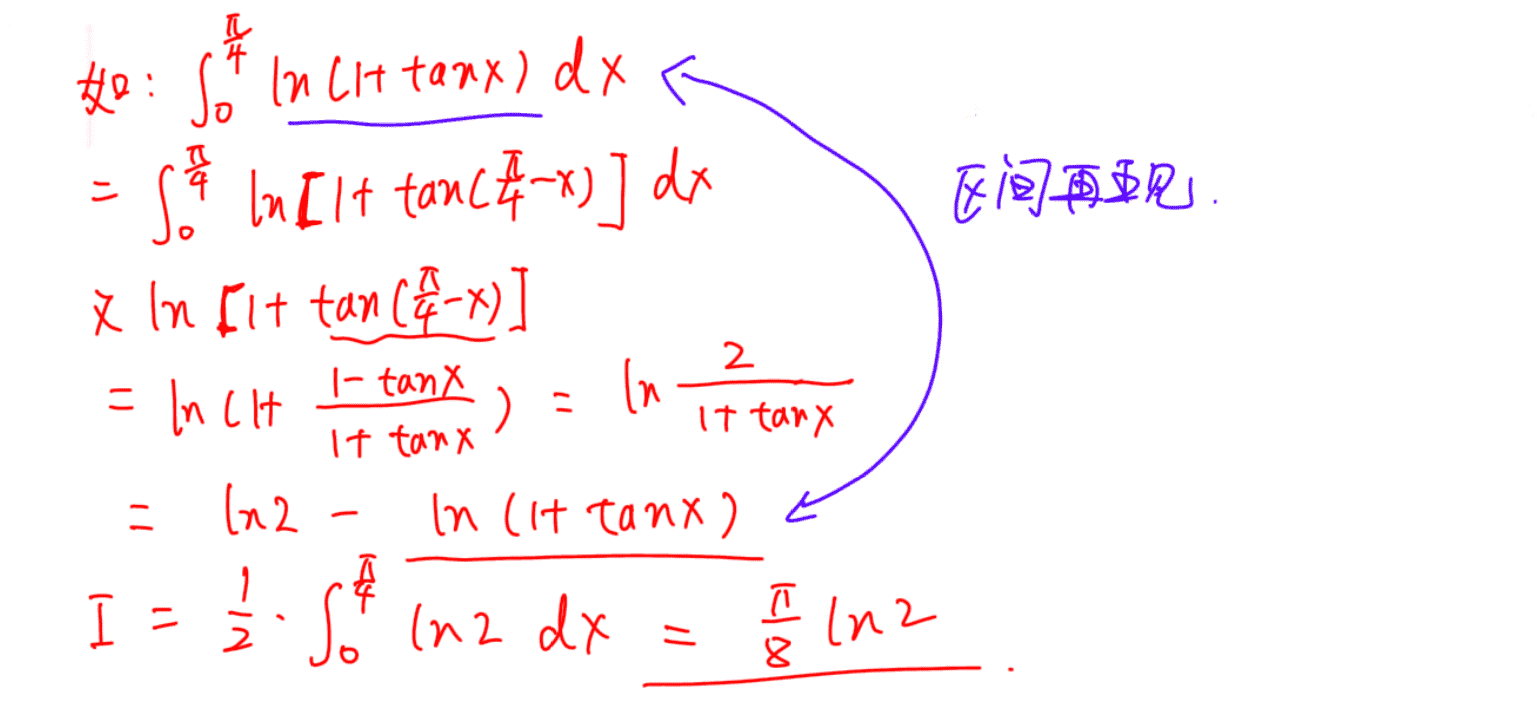 如: ∫₀^(π/4) ln(1+tanx) dx
= ∫₀^(π/4) ln[1+tan(π/4-x)] dx
区间再现.
又 ln[1+tan(π/4-x)]
= ln(1+ (1-tanx)/(1+tanx)) = ln 2/(1+tanx)
= ln2 - ln(1+tanx)
I = 1/2 · ∫₀^(π/4) ln2 dx = π/8 ln2.